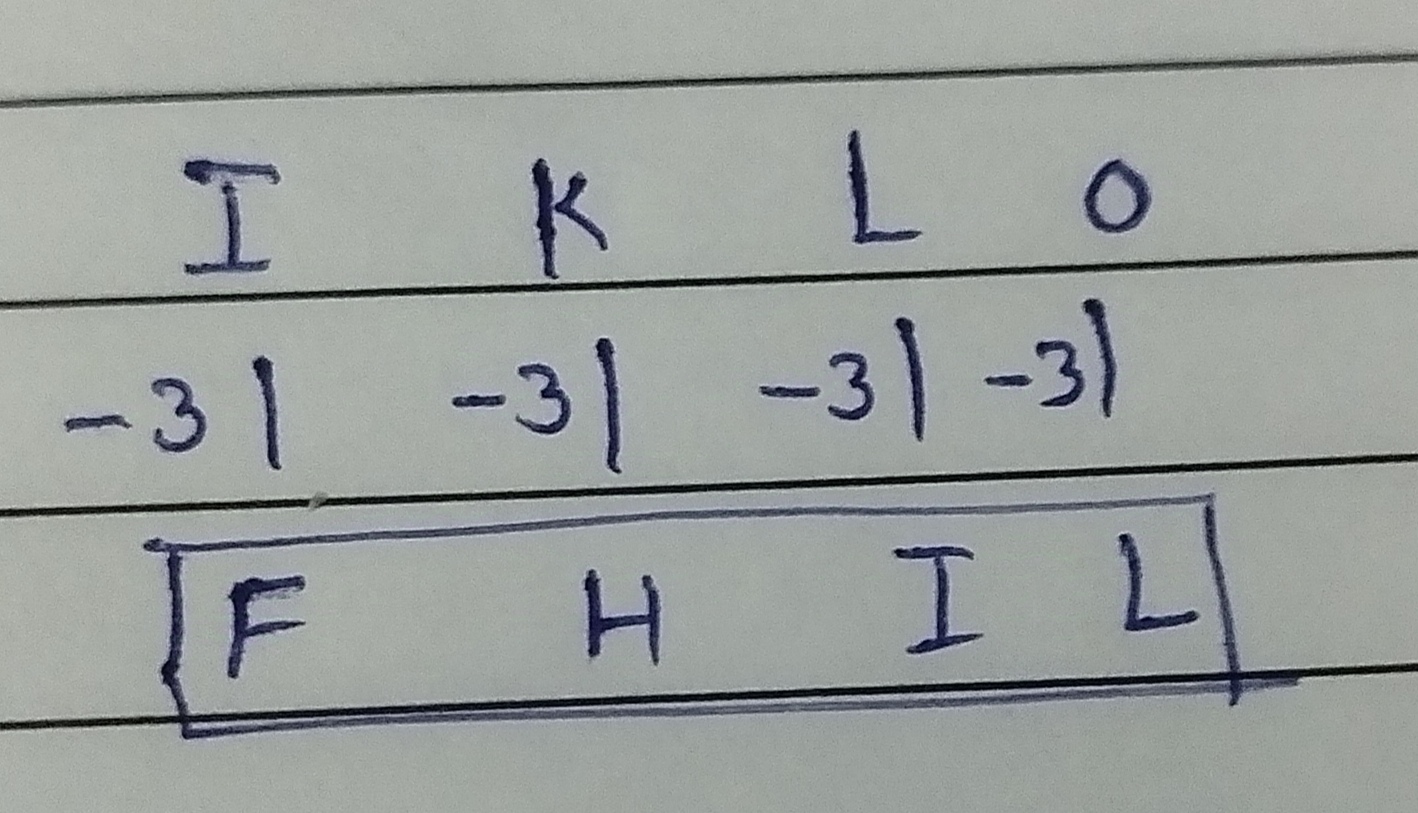 I K L O
-3| -3| -3| -3|
F H I L